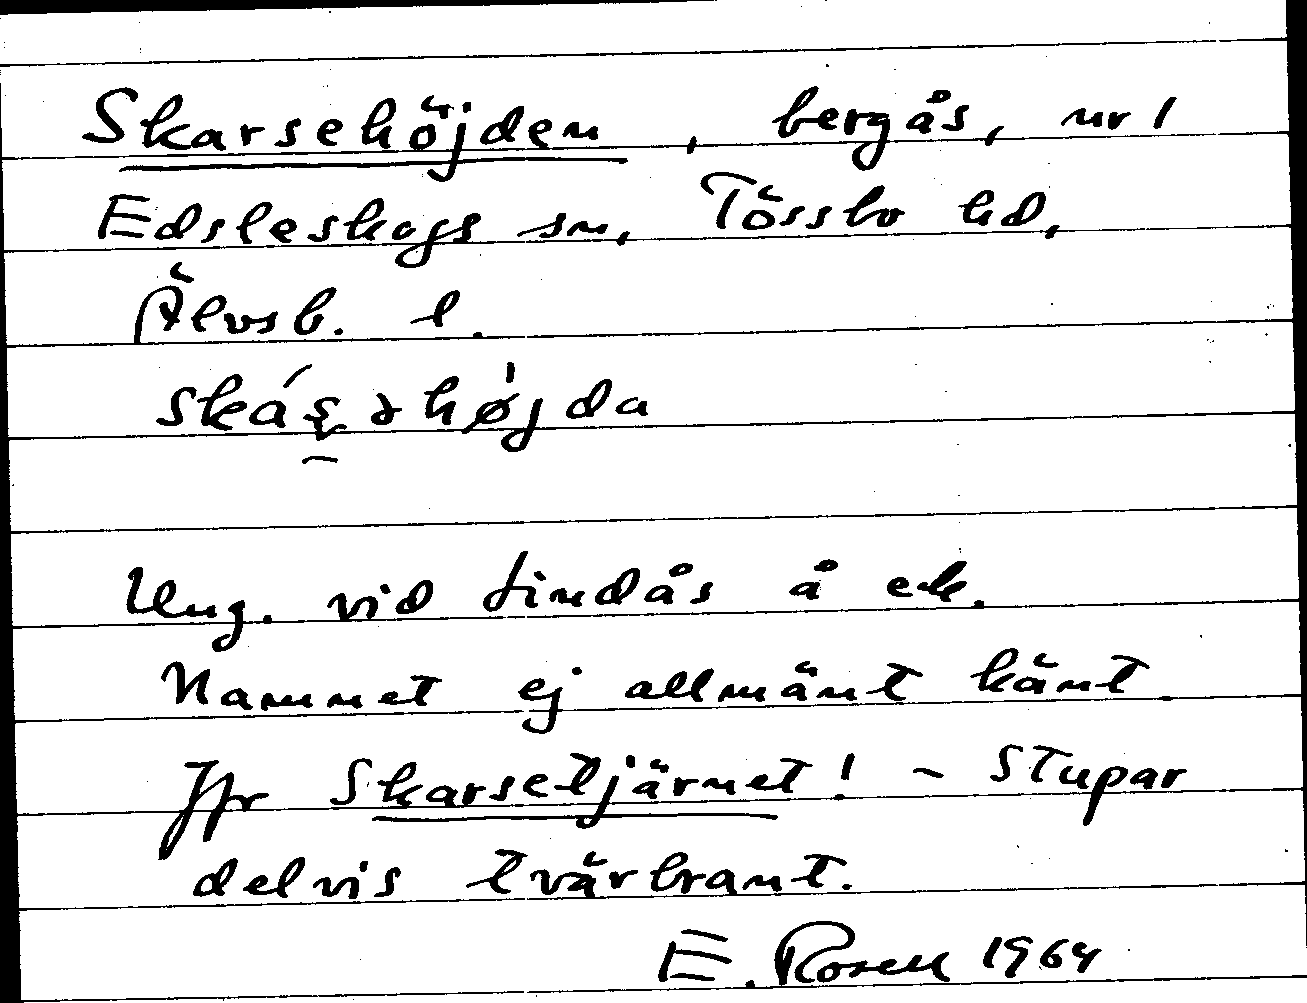 Skarsehöjden, bergås, nr 1
Edsleskogs sn, Tössbo hd,
Älvsb. l.
Ung. vid Lindås å ek.
Namnet ej allmänt känt.
Jfr Skarsetjärnet! - Stupar
delvis tvärbrant.
E. Rosell 1964